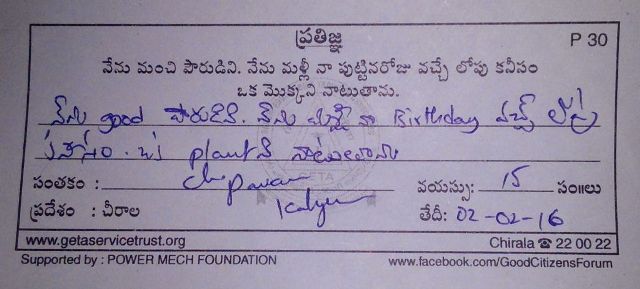 ప్రతిజ్ఞ
P 30
నేను మంచి పౌరుడిని. నేను మళ్లీ నా పుట్టినరోజు వచ్చే లోపు కనీసం
ఒక మొక్కని నాటుతాను.
నేను good పౌరుడిని. నేను మళ్లీ నా Birthday వచ్చే లోపు
కనీసం ఒక plantని నాటుతాను
సంతకం : ch pavan kalyan
వయస్సు: 15 సం॥లు
ప్రదేశం : చీరాల
తేదీ: 02-02-16
www.getaservicetrust.org
Chirala ☎ 22 00 22
Supported by : POWER MECH FOUNDATION
www.facebook.com/GoodCitizensForum